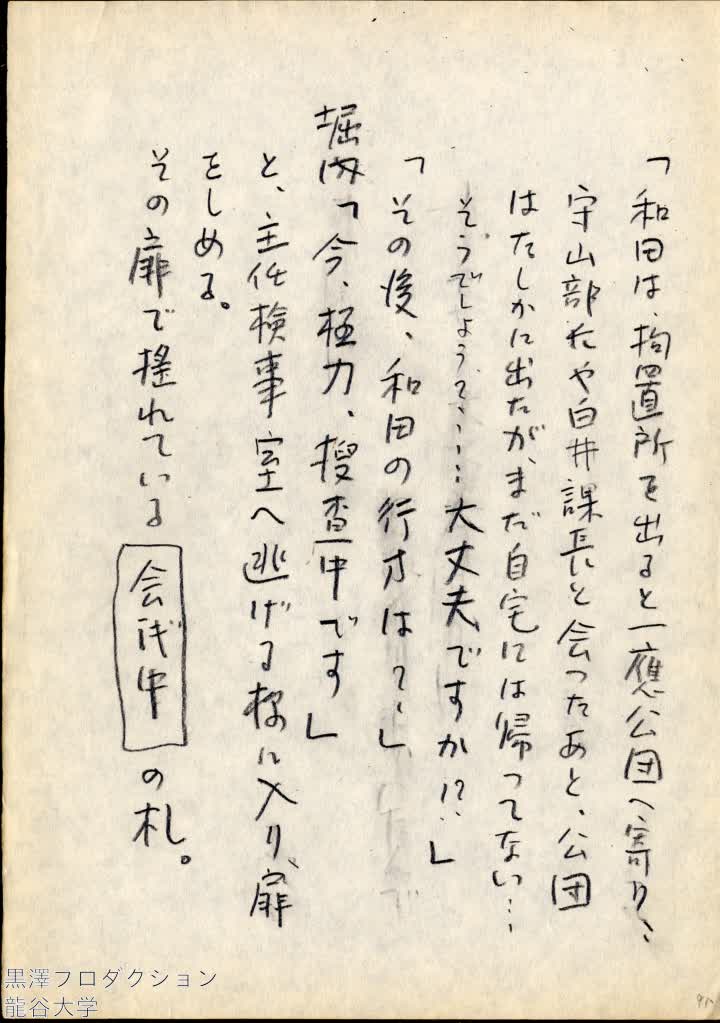 「和田は、拘置所を出ると一應公団へ寄り、
守山部長や白井課長と会ったあと、公団
はたしかに出たが、まだ自宅には帰ってない…
そうでしょう?、……大丈夫ですか!?」
「その後、和田の行方は?」
堀内「今、極力、捜査中です」
と、主任検事室へ逃げる様に入り、扉
をしめる。
その扉で揺れている 会議中 の札。
黒澤プロダクション
龍谷大学